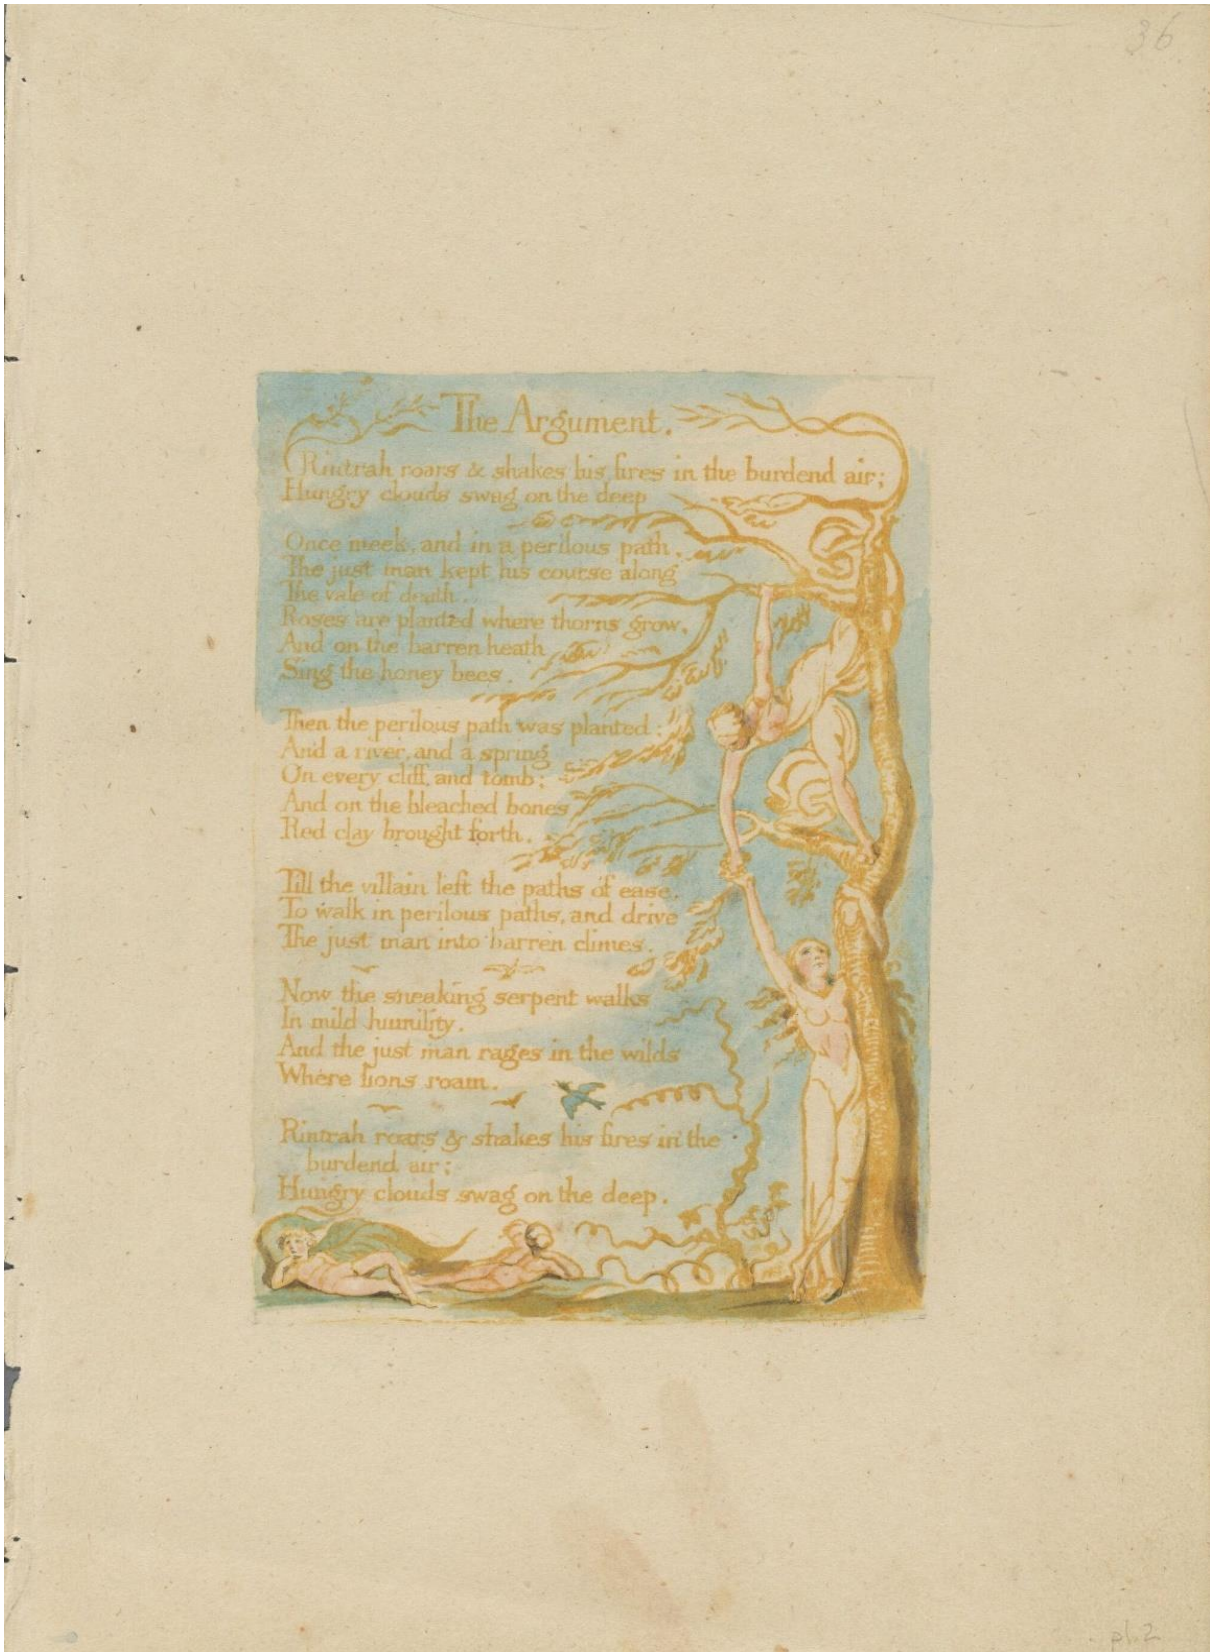 36
The Argument.
Rintrah roars & shakes his fires in the burdend air;
Hungry clouds swag on the deep
Once meek, and in a perilous path,
The just man kept his course along
The vale of death.
Roses are planted where thorns grow,
And on the barren heath
Sing the honey bees.
Then the perilous path was planted:
And a river, and a spring
On every cliff and tomb;
And on the bleached bones
Red clay brought forth.
Till the villain left the paths of ease,
To walk in perilous paths, and drive
The just man into barren climes.
Now the sneaking serpent walks
In mild humility.
And the just man rages in the wilds
Where lions roam.
Rintrah roars & shakes his fires in the
burdend air;
Hungry clouds swag on the deep.
pl. 2